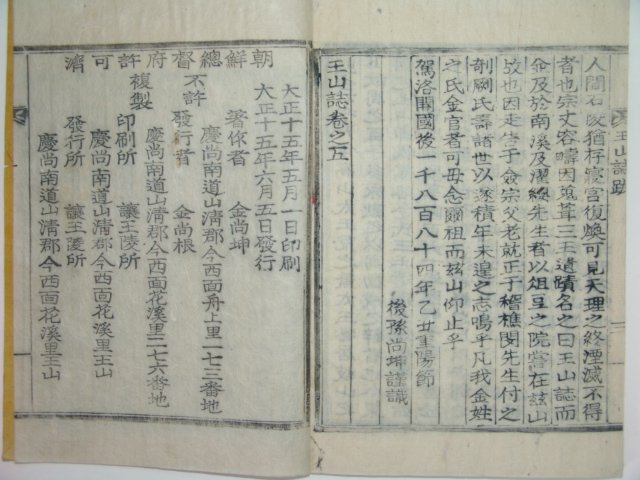 王山誌跋
人間石改猶存寢宮復煥可見天理之終湮滅不得
者也宗丈容疇因蒐葺三王遺蹟名之曰王山誌而
余及於南溪及濯纓先生者以俎豆之院嘗在玆山
故也因走告于僉宗父老就正于稽樵閔先生付之
剞劂氏壽諸世以遂積年未遑之志嗚乎凡我金姓
之氏金官者可毋念爾祖而玆山仰止乎
駕洛開國後一千八百八十四年乙丑重陽節
後孫尚坤謹識
王山誌卷之五
大正十五年五月一日印刷
大正十五年六月五日發行
著作者 金尚坤
慶尚南道山淸郡今西面舟上里一七三番地
發行者 金尚根
慶尚南道山淸郡今西面花溪里二七六番地
印刷所 讓王陵所
慶尚南道山淸郡今西面花溪里王山
發行所 讓王陵所
慶尚南道山淸郡今西面花溪里王山
不許複製
朝鮮總督府許可濟